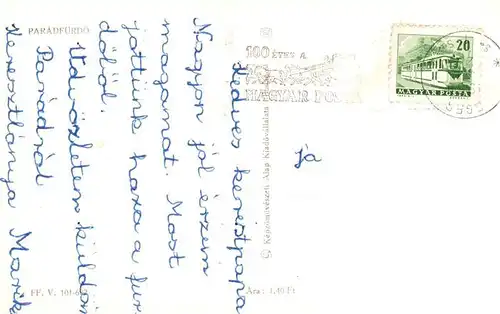 PARÁDFÜRDŐ
Kedves keresztpapa
Nagyon jól érzem
magamat. Most
jöttünk haza a für
dőből.
Üdvözletem küldöm
Parádról
keresztlánya Marik
ja
100 ÉVES A
MAGYAR
20
MAGYAR POSTA
Képzőművészeti Alap Kiadóvállalata
FF. V.
Ára: 1,40 Ft